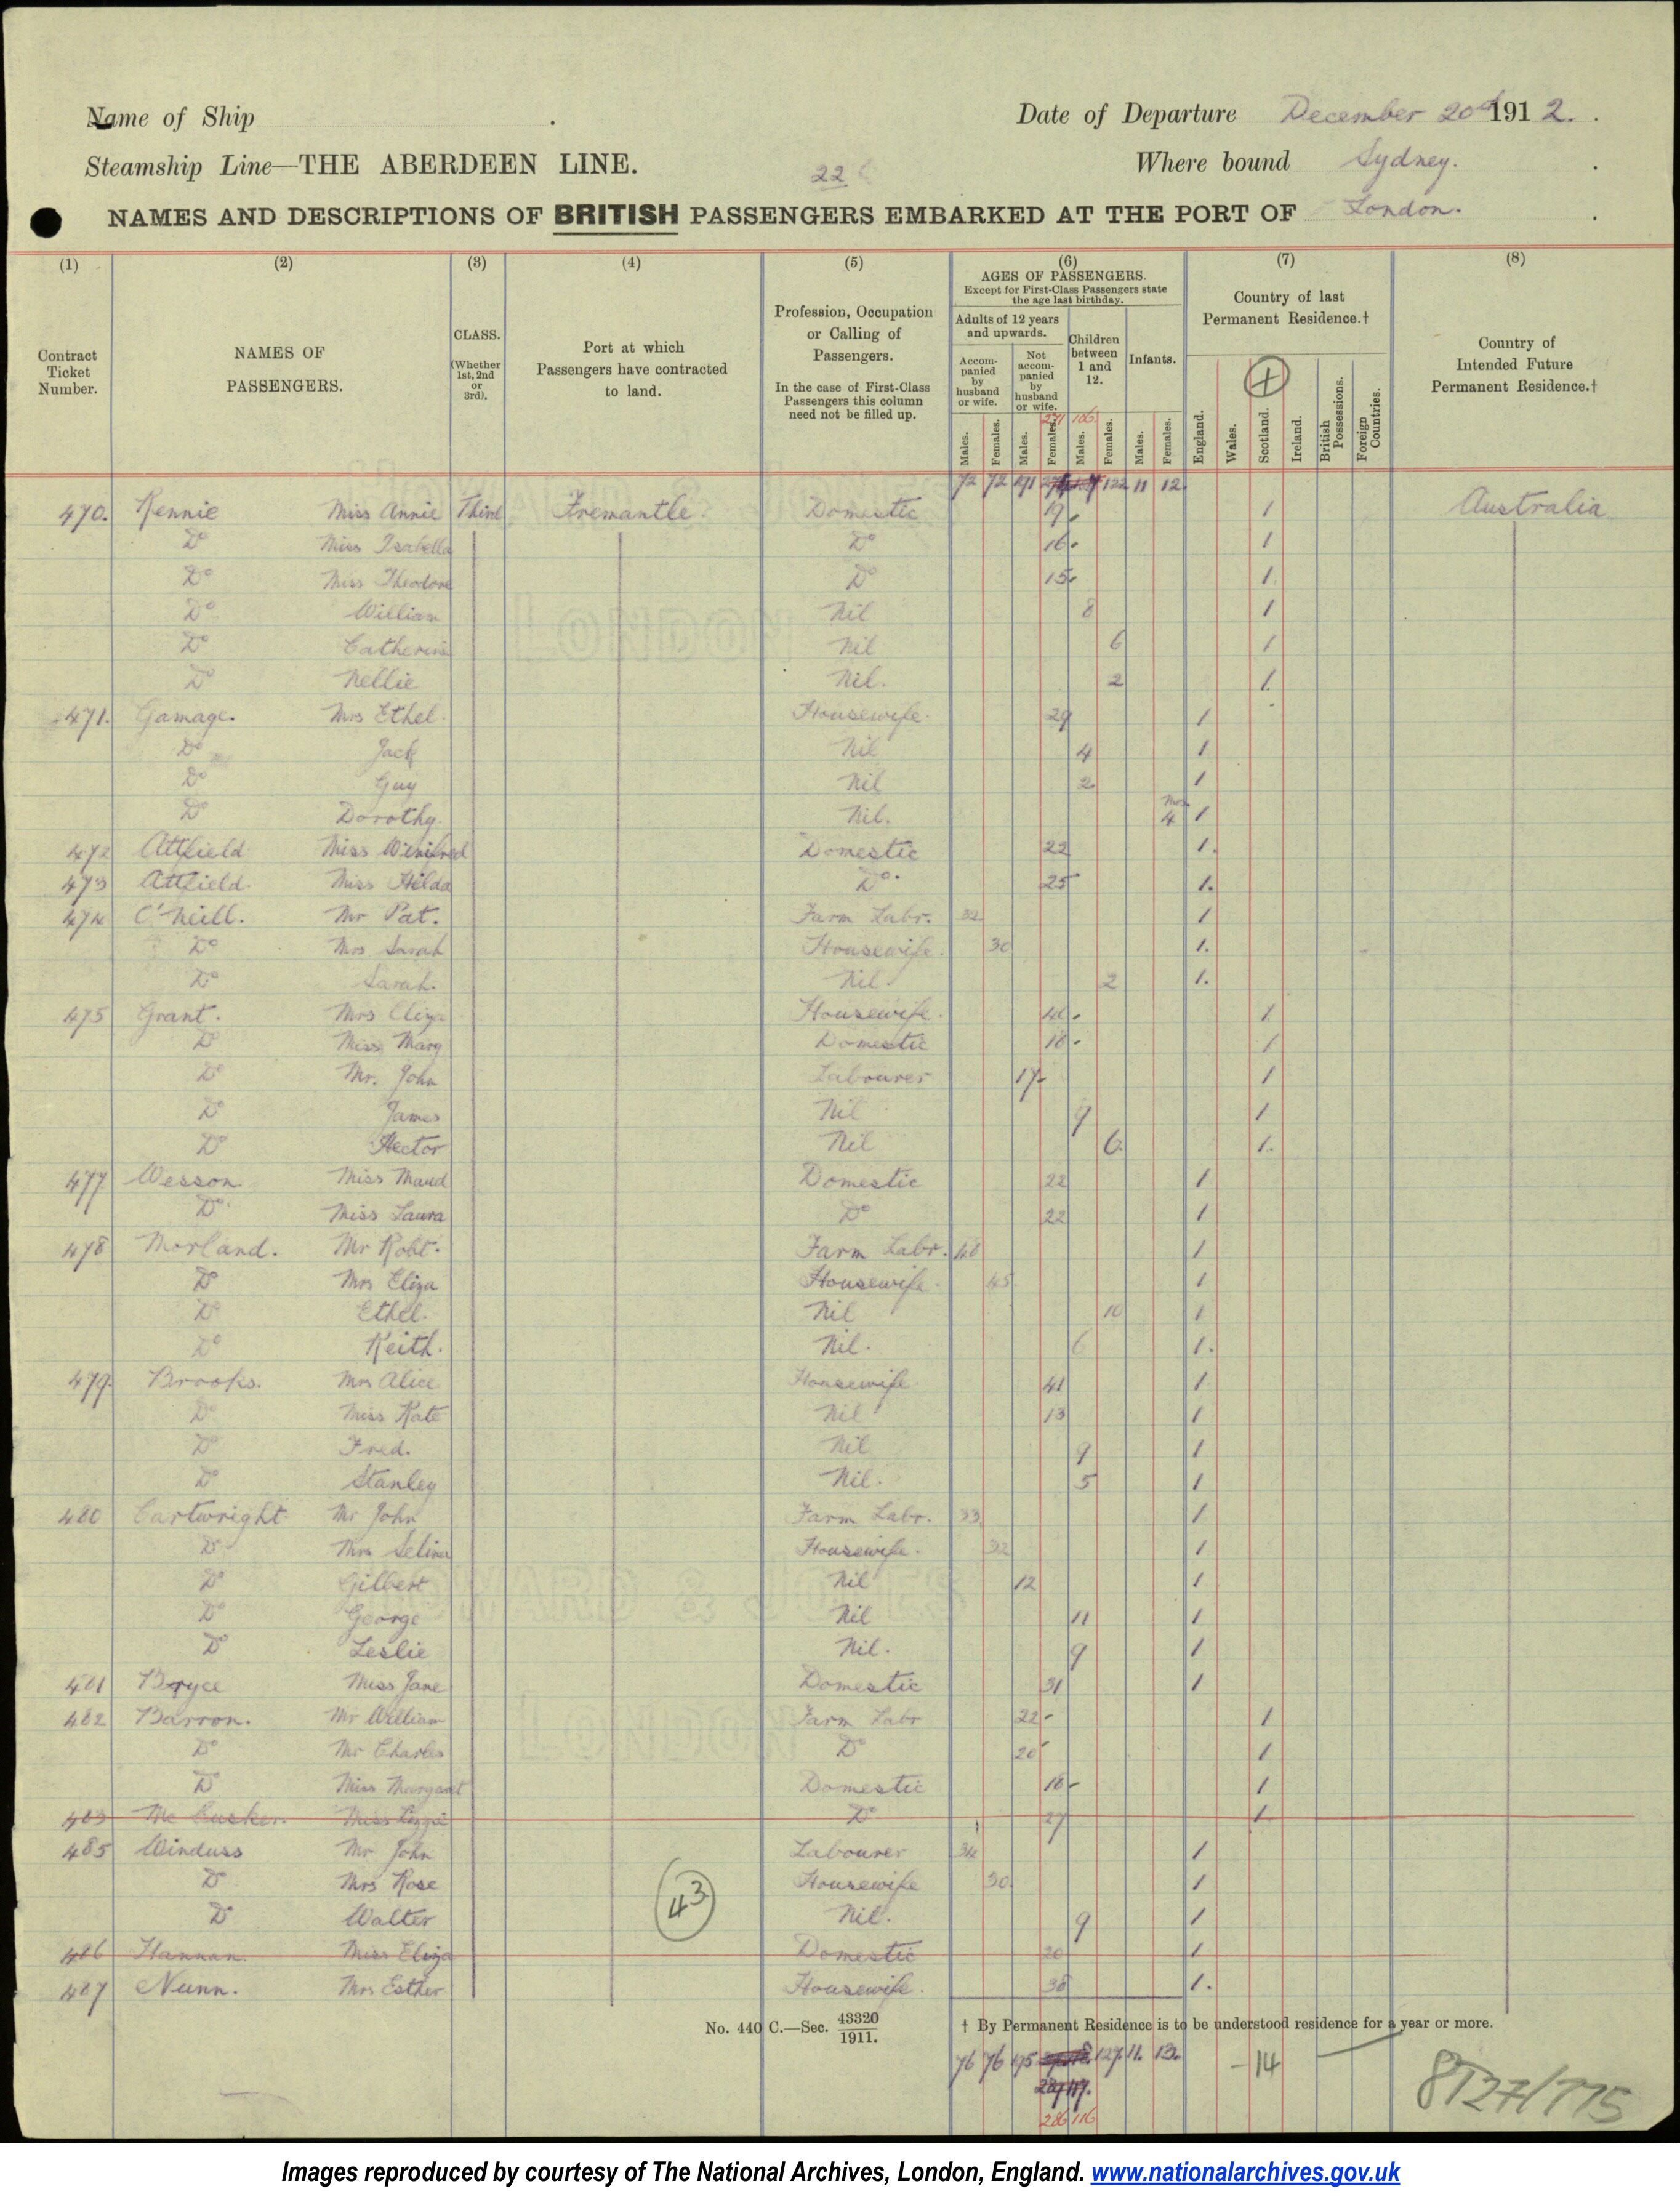 Name of Ship
Date of Departure December 20th 1912.
Steamship Line—THE ABERDEEN LINE.
22
Where bound Sydney.
NAMES AND DESCRIPTIONS OF BRITISH PASSENGERS EMBARKED AT THE PORT OF London.
(1) (2) (3) (4) (5) (6) (7) (8)
Contract Ticket Number.
NAMES OF PASSENGERS.
CLASS. (Whether 1st, 2nd or 3rd).
Port at which Passengers have contracted to land.
Profession, Occupation or Calling of Passengers.
In the case of First-Class Passengers this column need not be filled up.
AGES OF PASSENGERS.
Except for First-Class Passengers state the age last birthday.
Adults of 12 years and upwards.
Accompanied by husband or wife.
Not accompanied by husband or wife.
Children between 1 and 12.
Infants.
Males. Females. Males. Females. Males. Females. Males. Females.
Country of last Permanent Residence.†
England. Wales. Scotland. Ireland. British Possessions. Foreign Countries.
Country of Intended Future Permanent Residence.†
271 106
72 72 191 122 11 12
470. Rennie Miss Annie Third Fremantle Domestic 19 1 Australia
Do Miss Isabella Do 16 1
Do Miss Theodore Do 15 1
Do William Nil 8 1
Do Catherine Nil 6 1
Do Nellie Nil. 2 1
471. Gamage. Mrs Ethel. Housewife. 29 1
Do Jack Nil 4 1
Do Guy Nil 2 1
Do Dorothy. Nil. mos 4 1
472 Attfield Miss Winifred Domestic 22 1.
473 Attfield. Miss Hilda Do. 25 1.
474 O'Neill. Mr Pat. Farm Labr. 32 1
Do Mrs Sarah Housewife. 30 1.
Do Sarah. Nil. 2 1.
475 Grant. Mrs Eliza Housewife. 1
Do Miss Mary Domestic 18 1
Do Mr. John Labourer 17 1
Do James Nil 9 1
Do Hector Nil 6 1.
477 Wesson Miss Maud Domestic 22 1
Do Miss Laura Do 22 1
478 Morland. Mr Robt. Farm Labr. 1
Do Mrs Eliza Housewife. 45 1
Do Ethel. Nil 10 1
Do Keith. Nil. 6 1.
479. Brooks. Mrs Alice Housewife 41 1
Do Miss Kate Nil 13 1
Do Fred. Nil 9 1
Do Stanley Nil. 5 1
480 Cartwright Mr John Farm Labr. 33 1
Do Mrs Selina Housewife. 32 1
Do Gilbert Nil 12 1
Do George Nil 11 1
Do Leslie Nil. 9 1
481 Bryce Miss Jane Domestic 31 1
482 Barron. Mr William Farm Labr 22 1
Do Mr Charles Do 20 1
Do Miss Margaret Domestic 18 1
483 Mc Cusker. Miss Lizzie Do 27 1
485 Winduss Mr John Labourer 34 1
Do Mrs Rose Housewife 30 1
Do Walter Nil. 9 1
43
486 Hannan. Miss Eliza Domestic 20 1
487 Nunn. Mrs Esther Housewife. 38 1.
No. 440 C.—Sec. 43320/1911.
† By Permanent Residence is to be understood residence for a year or more.
76 76 195 127 11. 13.
—14
286 116
8727/775
Images reproduced by courtesy of The National Archives, London, England. www.nationalarchives.gov.uk